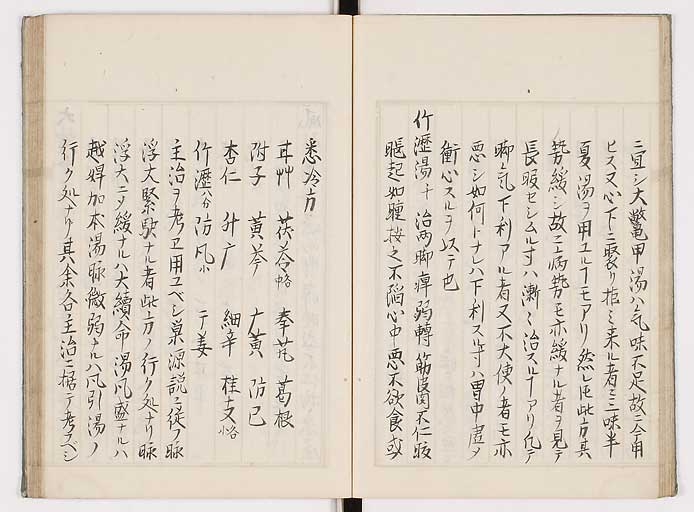 ニ宜シ大鼈甲湯ハ気味不足故ニ今用
ヒス又心下ニ聚リ拒ミ来ル者ニ三味半
夏湯ヲ用ユルヿモアリ然レ𪜈此方其
勢緩シ故ニ病勢モ亦緩ナル者ヲ見テ
長服セシムル寸ハ漸〻治スルヿアリ凢テ
脚気下利アル者又不大便ノ者モ亦
悪シ如何トナレハ下利スル寸ハ胃中虚メ
衝心スルヲ以テ也
竹瀝湯千 治両脚痺弱轉筋皮肉不仁腹
脹起如腫按之不陥心中悪不欲食或
悉冷方
甘艸 茯苓 秦艽 葛根
附子 黄芩 广黄 防已
杏仁 升广 細辛 桂支
竹瀝 防凡 干姜
主治ヲ考ヱ用ユベシ巣源説ニ従フ脉
浮大緊駃ナル者此方ノ行ク処ナリ脉
浮大ニメ緩ナルハ大續命湯凡盛ナルハ
越婢加术湯脉微弱ナルハ凡引湯ノ
行ク処ナリ其余各主治ニ据テ考フベシ